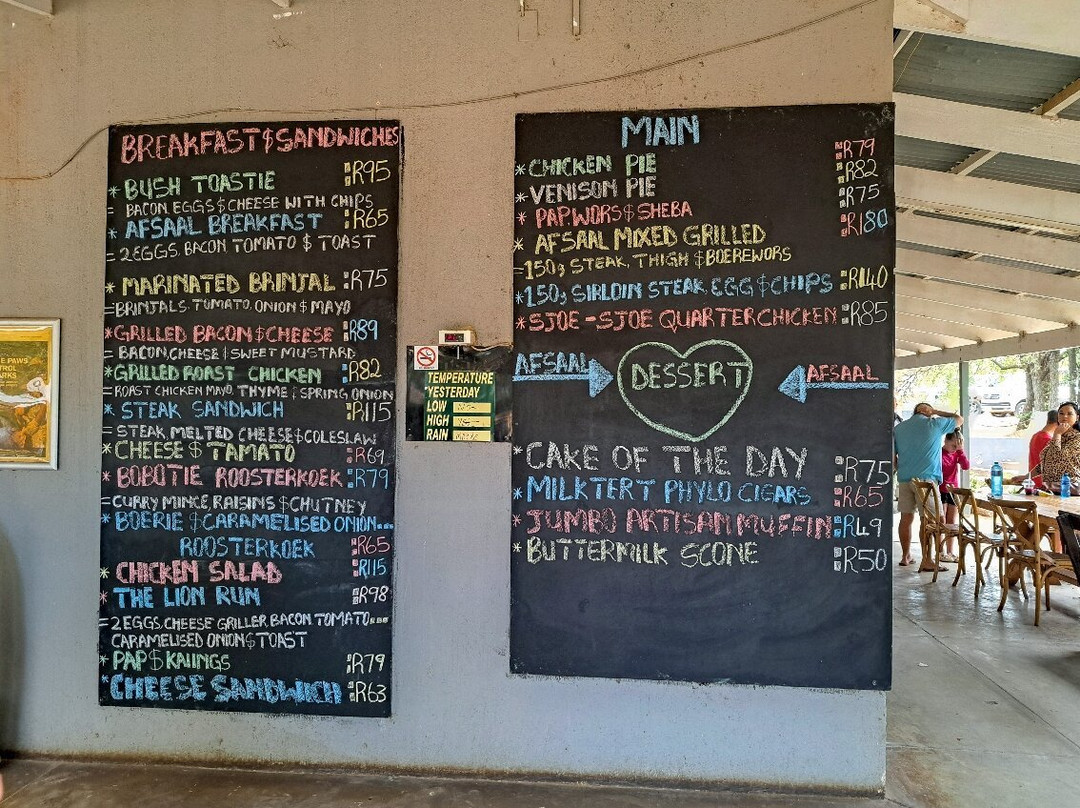 BREAKFAST$SANDWICHES
* BUSH TOASTIE :R95
= BACON, EGGS $ CHEESE WITH CHIPS
* AFSAAL BREAKFAST :R65
= 2 EGGS, BACON, TOMATO $ TOAST
* MARINATED BRINJAL :R75
= BRINJALS, TOMATO, ONION $ MAYO
* GRILLED BACON $ CHEESE :R89
= BACON, CHEESE $ SWEET MUSTARD
* GRILLED ROAST CHICKEN :R82
= ROAST CHICKEN MAYO, THYME $ SPRING ONION
* STEAK SANDWICH :R115
= STEAK, MELTED CHEESE $ COLESLAW
* CHEESE $ TAMATO :R69
* BOBOTIE ROOSTERKOEK :R79
= CURRY MINCE, RAISINS $ CHUTNEY
* BOERIE $ CARAMELISED ONION...
ROOSTERKOEK :R65
* CHICKEN SALAD :R115
* THE LION RUM :R98
= 2 EGGS, CHEESE GRILLER BACON, TOMATO...
CARAMELISED ONION $ TOAST
* PAP $ KAIINGS :R79
* CHEESE SANDWICH :R63
E PAWS
TROL
ARKS
TEMPERATURE
YESTERDAY
LOW
HIGH
RAIN
MAIN
* CHICKEN PIE :R79
* VENISON PIE :R82
* PAP,WORS $ SHEBA :R75
* AFSAAL MIXED GRILLED :R180
= 150g STEAK, THIGH $ BOEREWORS
* 150g SIRLOIN STEAK, EGG $ CHIPS :R140
* SJOE-SJOE QUARTER CHICKEN :R85
AFSAAL DESSERT AFSAAL
* CAKE OF THE DAY :R75
* MILKTERT PHYLO CIGARS :R65
* JUMBO ARTISAN MUFFIN :R49
* BUTTERMILK SCONE :R50